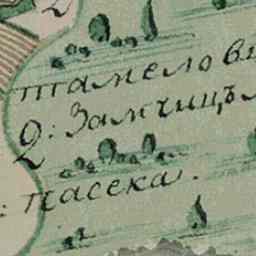 тамеловщ
2: Замчицъ
: пасека.